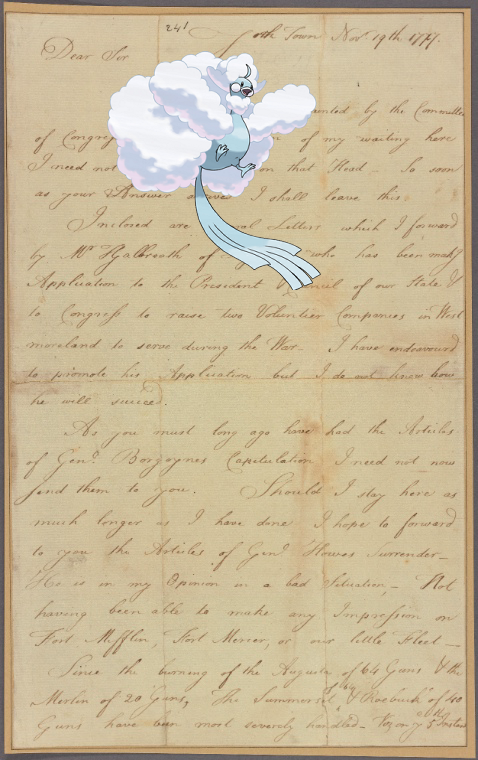 241
York Town Nov. 19th 1777.
Dear Sir
anted by the Committee
of Congre of my waiting here
I need not on that Head - So soon
as your Answer I shall leave this
Inclosed are ral Letters which I forward
by Mr Galbreath of who has been making
Application to the President Council of our State &
to Congress to raise two Volunteer Companies in West
moreland to serve during the War - I have endeavourd
to promote his Application but I do not know how
he will succed.
As you must long ago have had the Articles
of Genl. Borgoynes Capitulation I need not now
send them to you. Should I stay here as
much longer as I have done I hope to forward
to you the Articles of Genl Howes Surrender -
He is in my Opinion in a bad Situation, - Not
having been able to make any Impression on
Fort Mifflin, Fort Mercer, or our little Fleet -
Since the burning of the Augusta of 64 Guns & the
Merlin of 20 Guns, The Summerset & Roebuck of 40
Guns have been most severely handled -